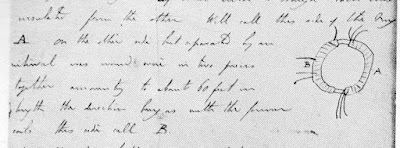 insulated from the other. Will call this side of the Ring
A. on the other side but separated by an
interval was wound wire in two pieces
together amounting to about 60 feet in
length the direction being as with the former
coils this side call B.
B
A